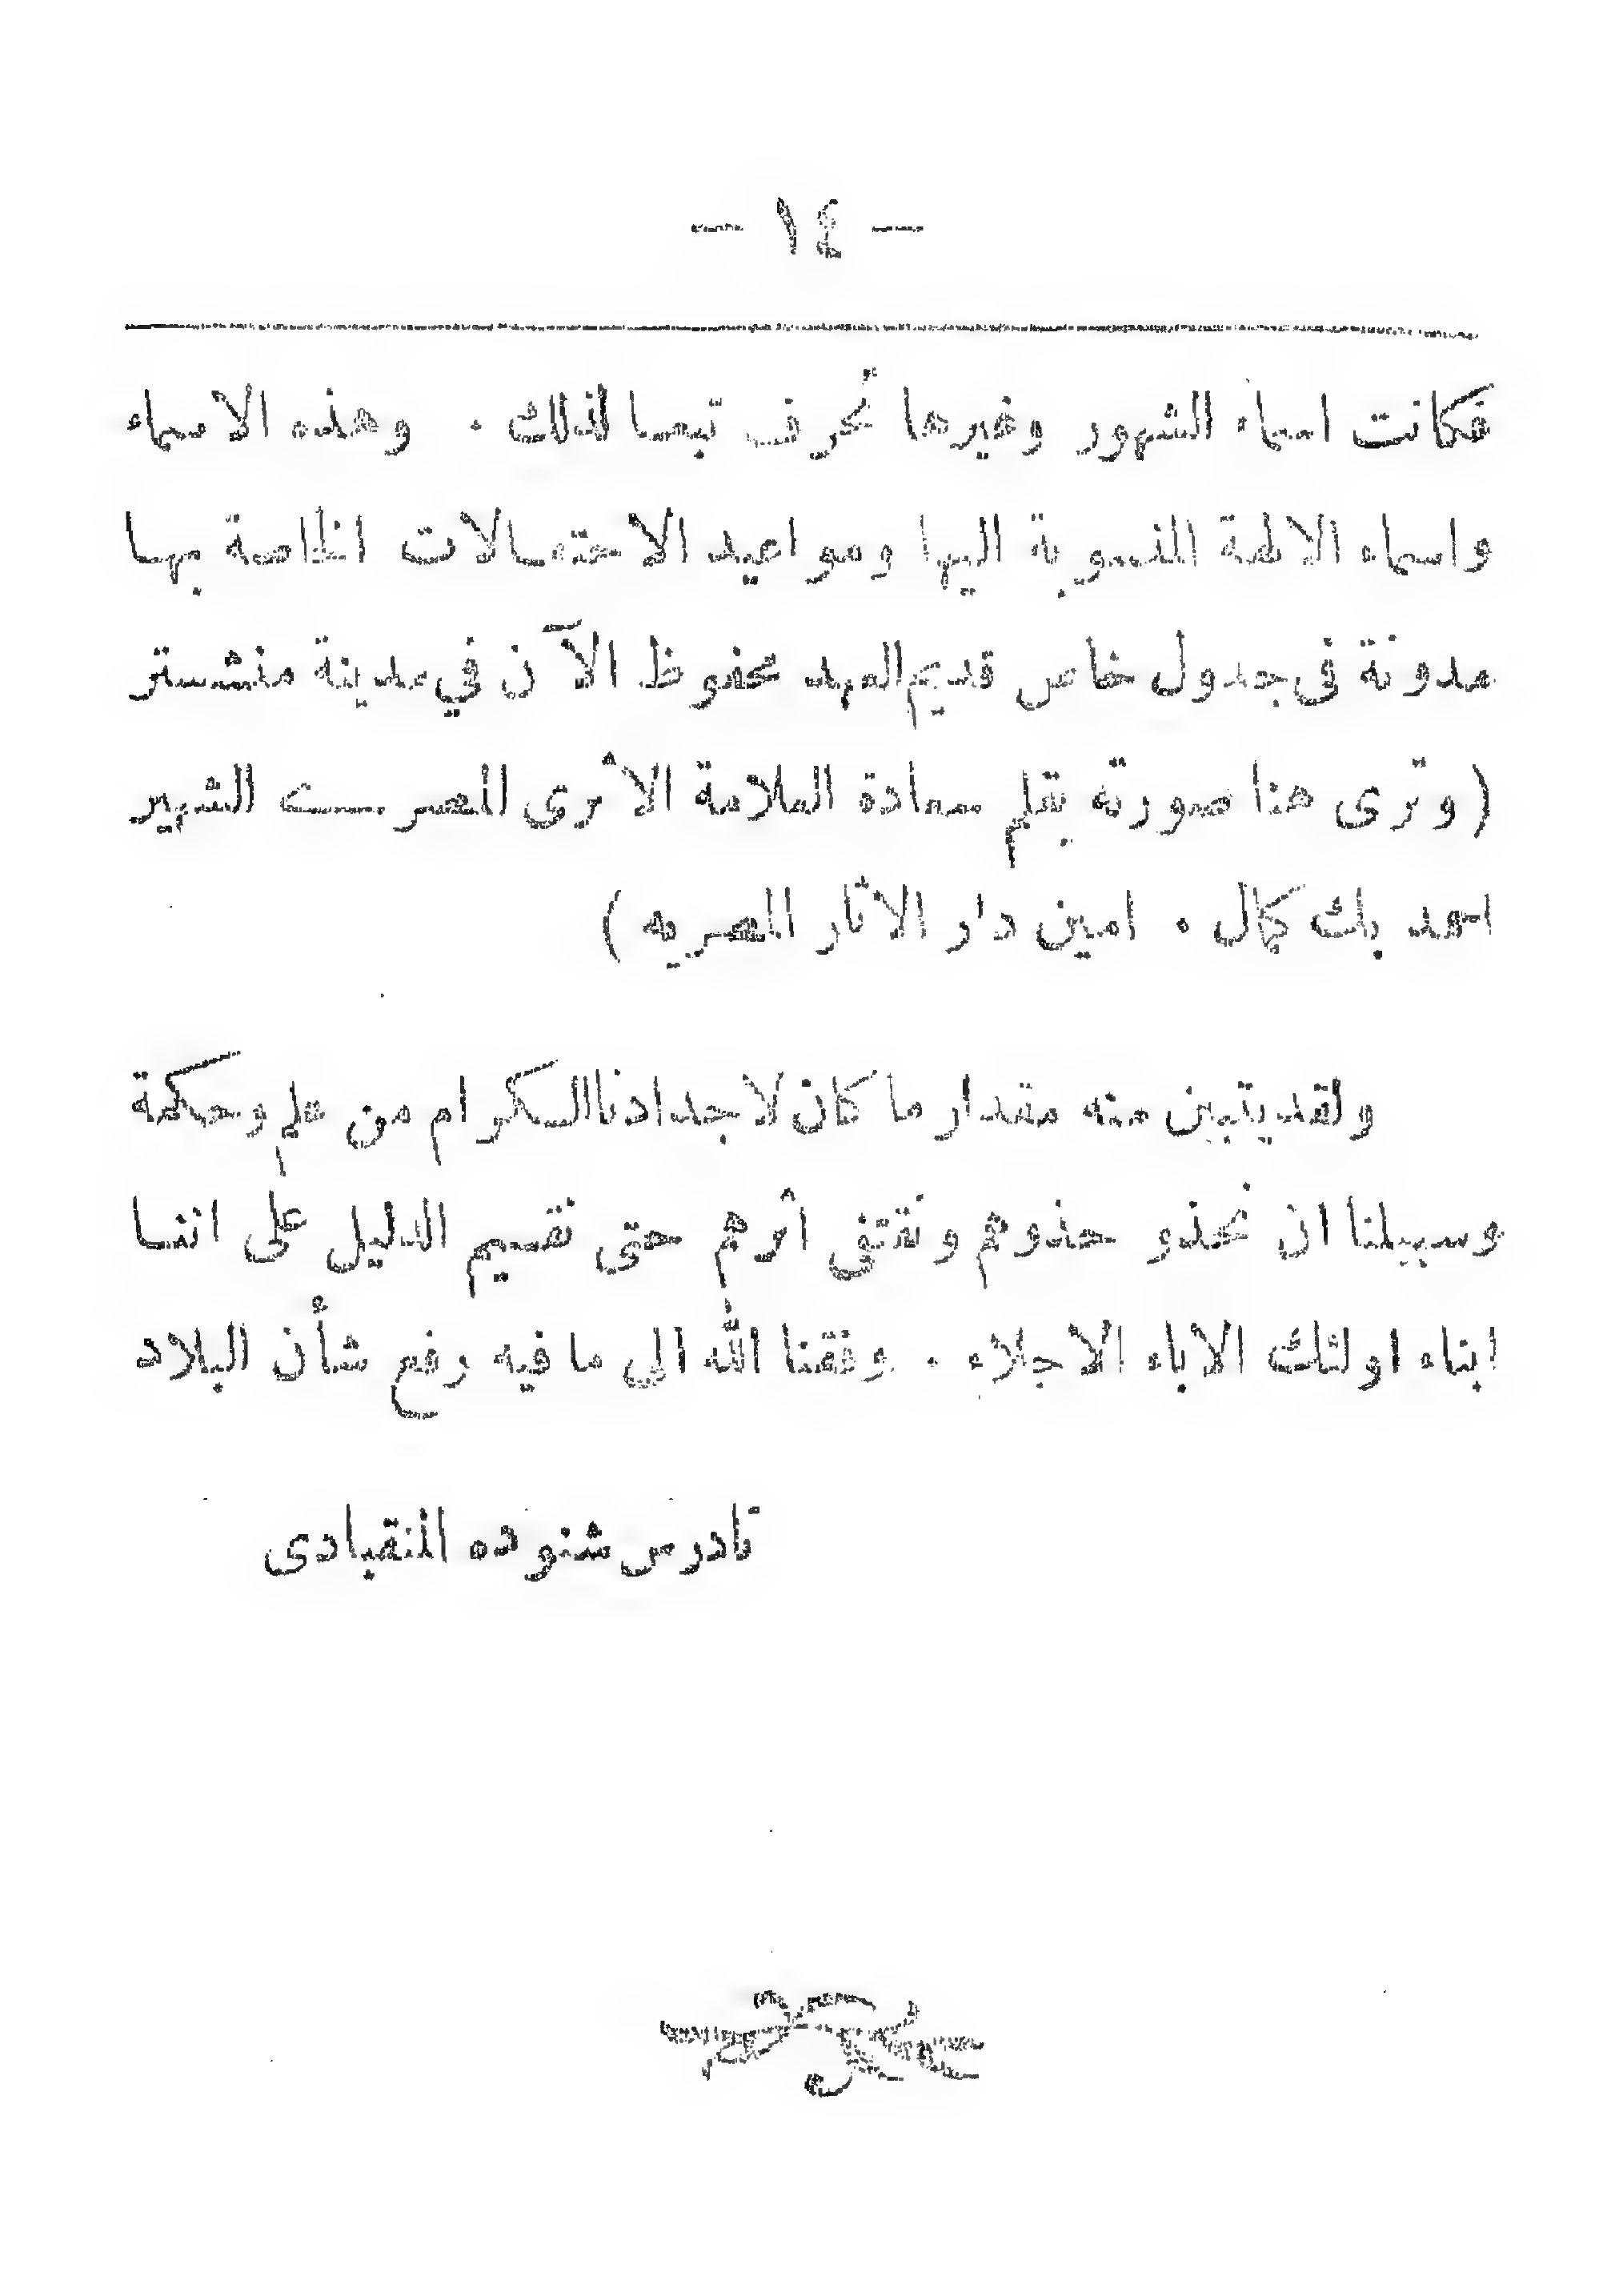 — ١٤ —
فكانت اسماء الشهور وغيرها تُحرف تبعا لذلك . وهذه الاسماء
واسماء الالهة المنسوبة اليها ومواعيد الاحتفالات الخاصة بها
مدونة فى جدول خاص قديم العهد محفوظ الآن في مدينة منشستر
( وترى هنا صورته بقلم سعادة العلامة الأثرى المصرى الشهير
احمد بك كمال . امين دار الاثار المصريه )
ولقد يتبين منه مقدار ما كان لاجدادنا الكرام من علم وحكمة
وسبيلنا ان نحذو حذوهم ونقتفى أثرهم حتى نقيم الدليل على اننا
ابناء اولئك الاباء الاجلاء . وفقنا الله الى ما فيه رفع شأن البلاد
تادرس شنوده المنقبادى